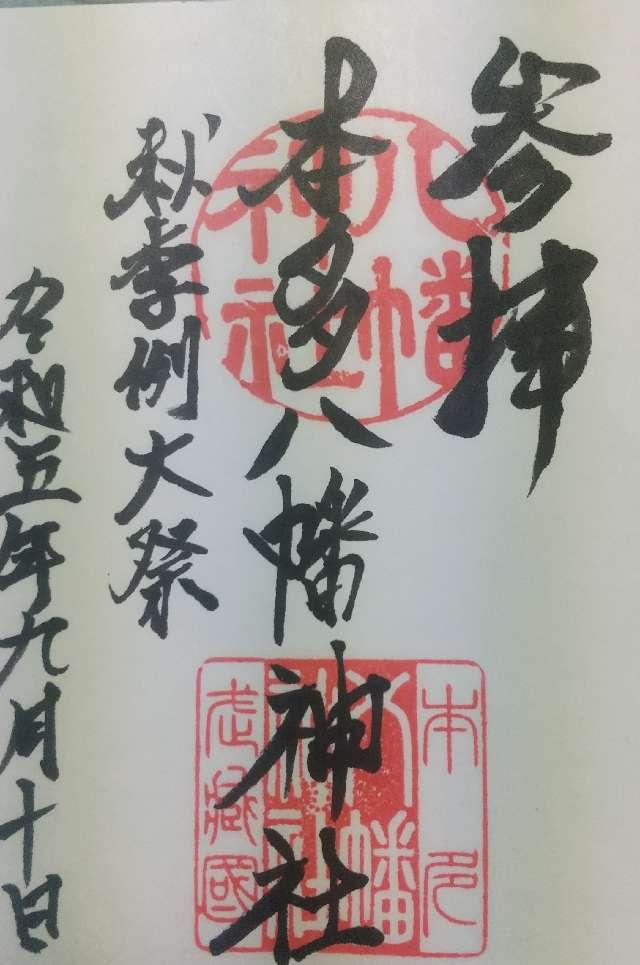 参拝
本多八幡神社
秋季例大祭
令和五年九月十日
八幡
神社
本多
八幡
神社
武蔵國